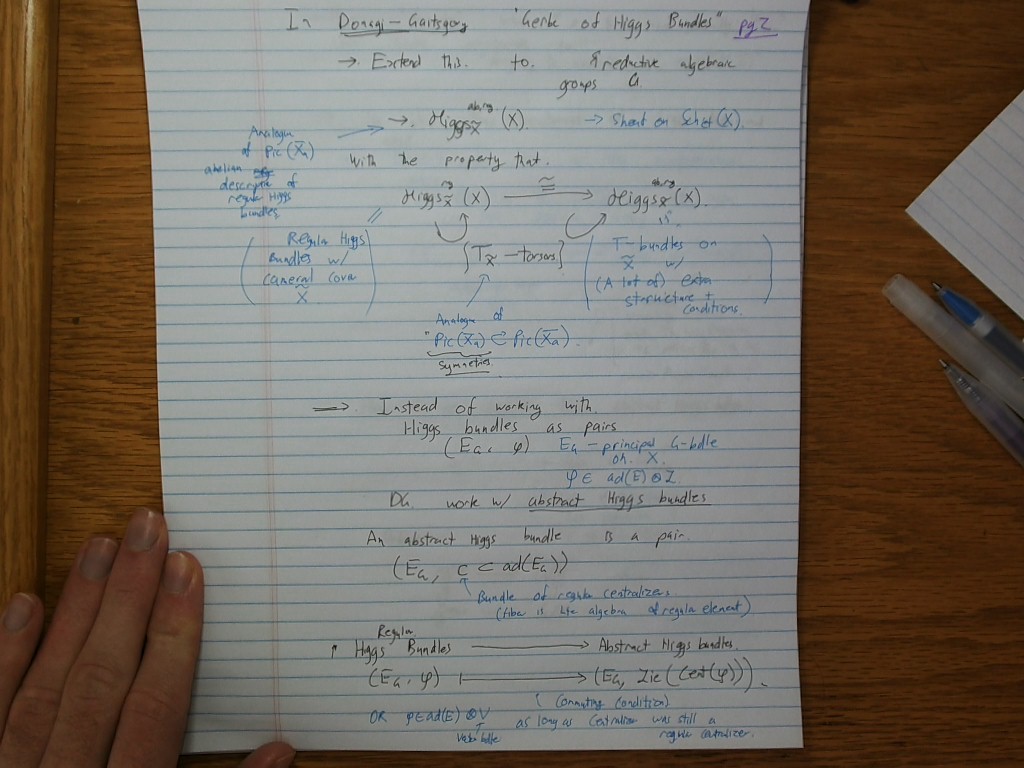 In Donagi-Gaitsgory "Gerbe of Higgs Bundles" pg.2
→ Extend this to reductive algebraic
groups G.
→ Higgs^{ab,reg}_{X̃} (X). → Sheaf on Sch_{et}(X).
Analogue
of Pic(X̄_a)
abelian
description of
regular Higgs
bundles
with the property that.
Higgs^{reg}_{X̃} (X) ≅ → Higgs^{ab,reg}_{X̃} (X).
(Regular Higgs
Bundles w/
Cameral Cover
X̃)
{T_{X̃} - torsors}
(T-bundles on
X̃ w/
(A lot of) extra
structure +
conditions.)
Analogue of
"Pic(X̄_a) ⊂ Pic(X̄_a).
symmetries.
→ Instead of working with
Higgs bundles as pairs
(E_G, φ) E_G - principal G-bdle
on X.
φ ∈ ad(E) ⊗ L
DG. work w/ abstract Higgs bundles
An abstract Higgs bundle is a pair.
(E_G, c ⊂ ad(E_G))
Bundle of regular centralizers.
(fiber is Lie algebra of regular element)
Regular
Higgs Bundles → Abstract Higgs bundles.
(E_G, φ) ↦ (E_G, Lie(Cent(φ))).
(Commuting condition)
OR φ ∈ ad(E) ⊗ V as long as centralizer was still a
Vector bdle regular centralizer.